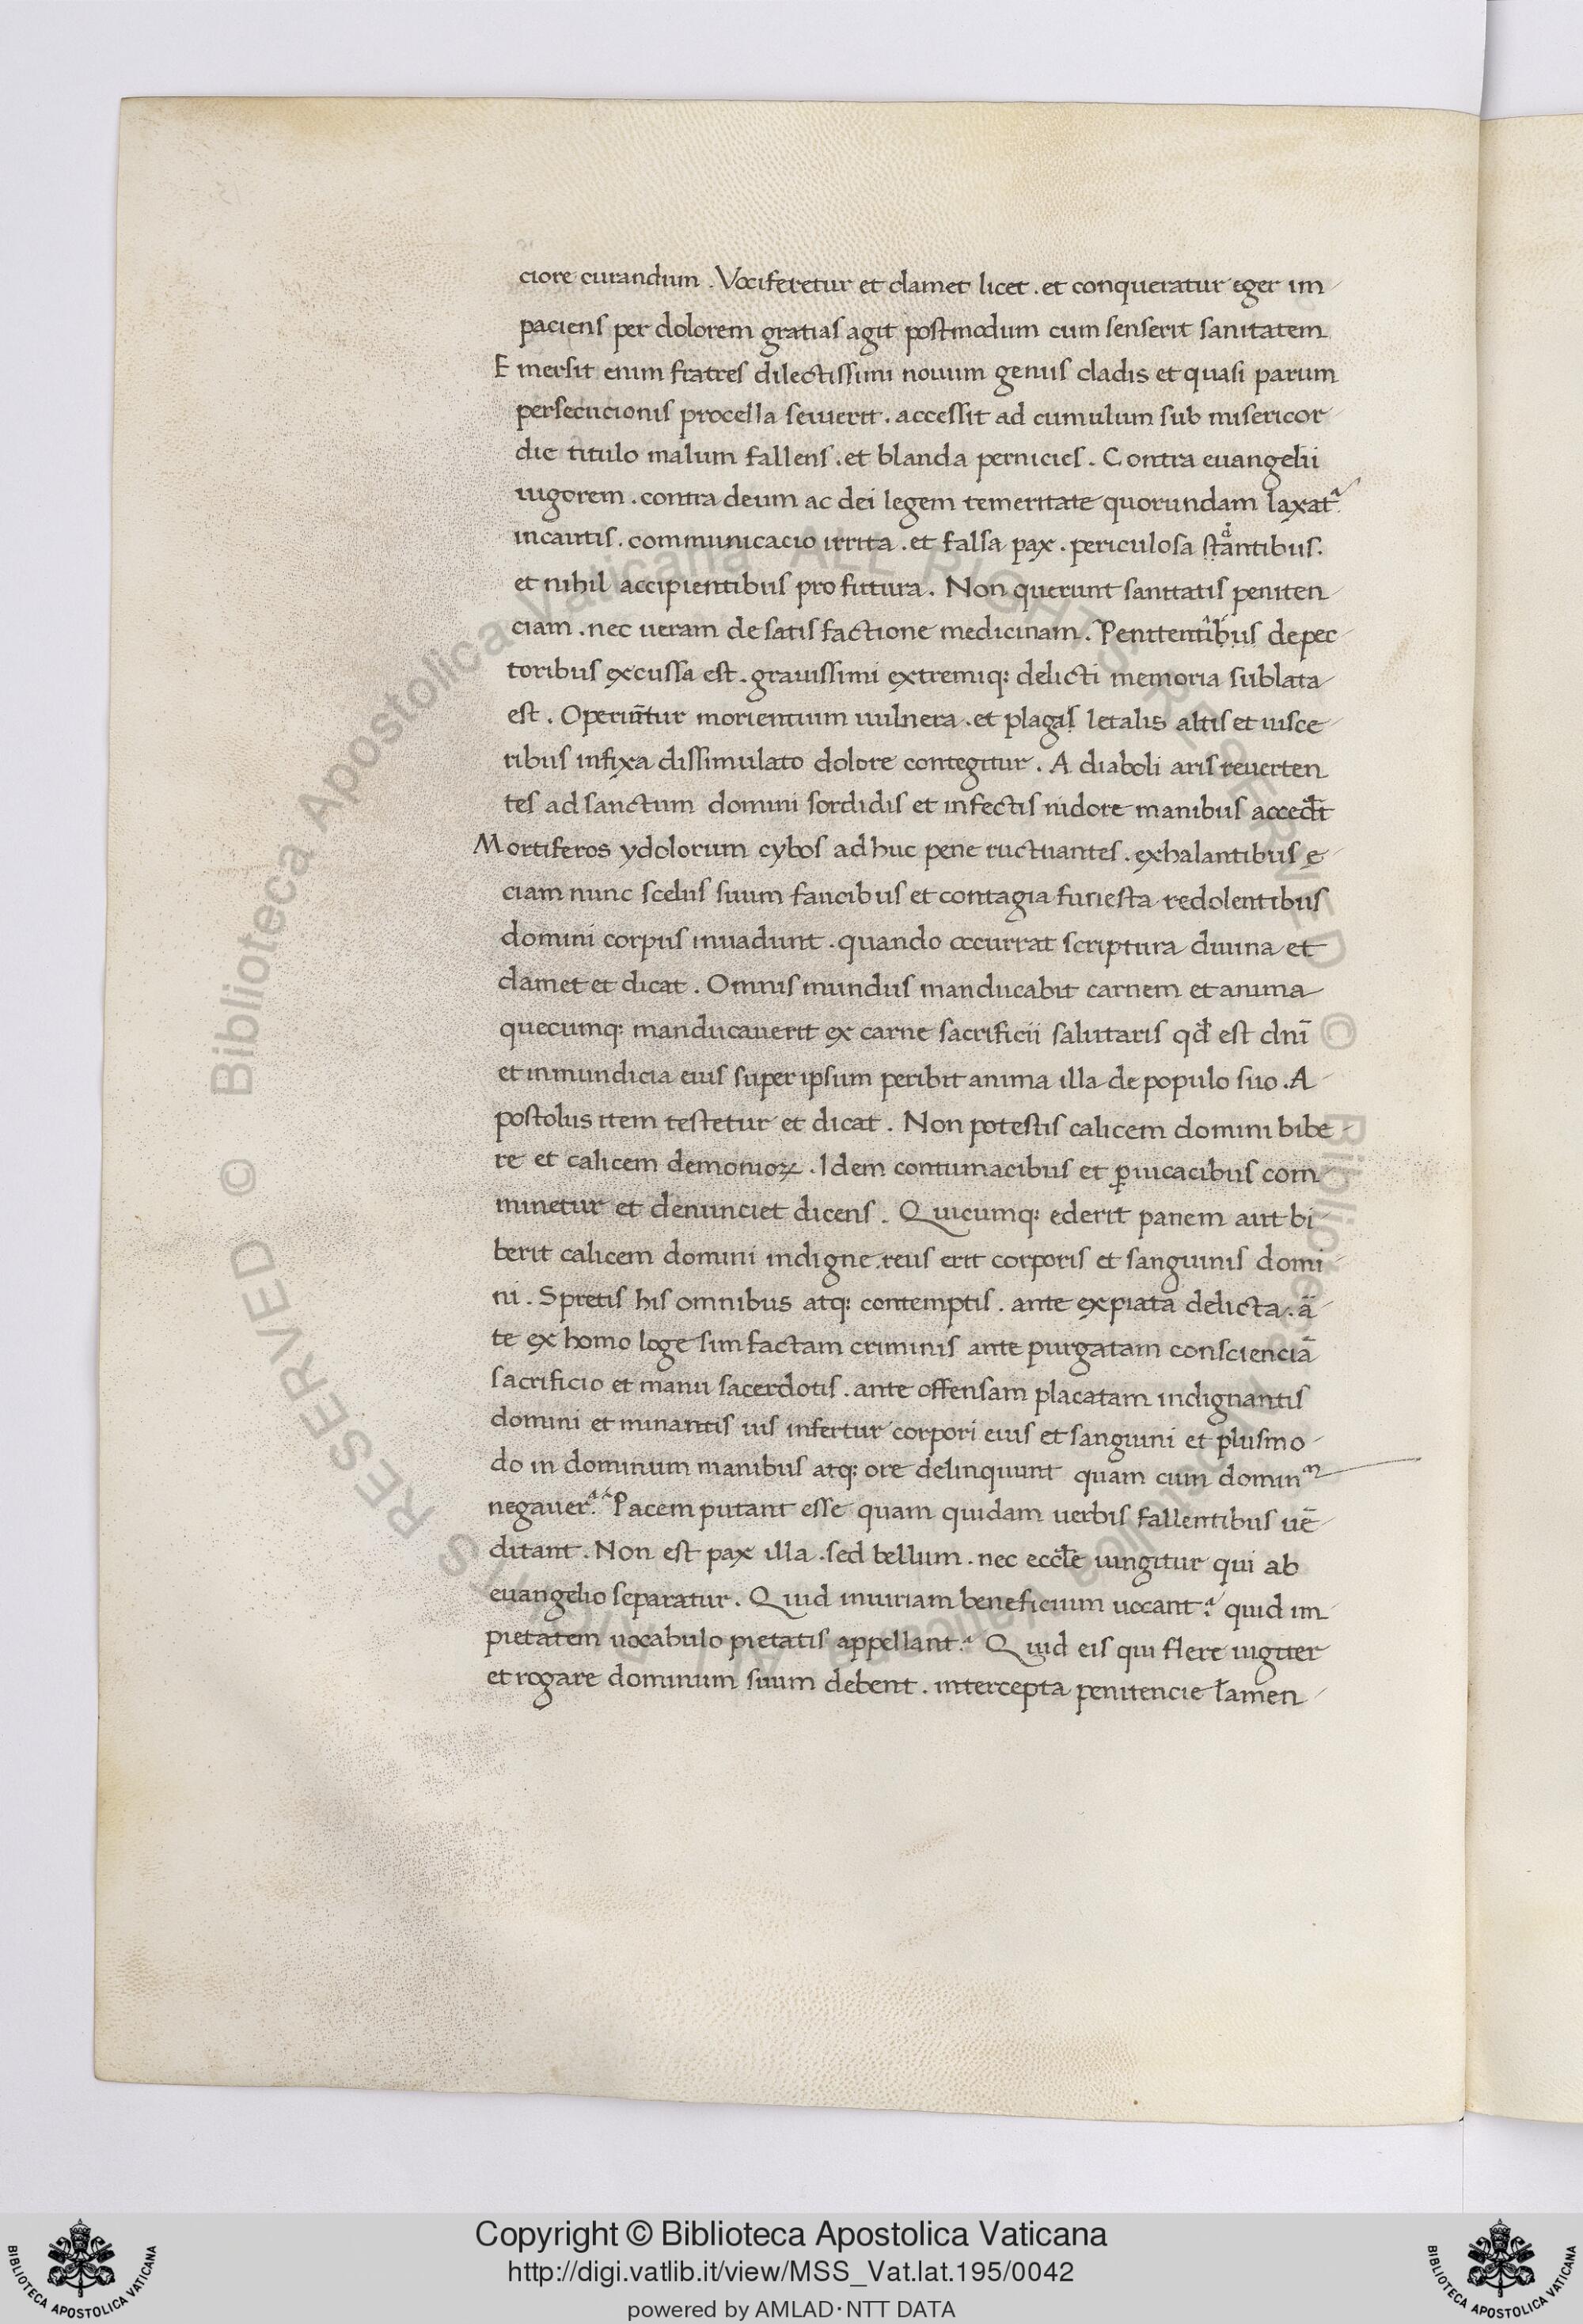 ciore curandum . Vociferetur et clamet licet . et conqueratur eger im
paciens per dolorem gratias agit postmodum cum senserit sanitatem
Emersit enim fratres dilectissimi nouum genus cladis et quasi parum
persecucionis procella seuierit . accessit ad cumulum sub misericor
die titulo malum fallens . et blanda pernicies . Contra euangelii
uigorem . contra deum ac dei legem temeritate quorundam laxat᷑
incautis . communicacio irrita . et falsa pax . periculosa stantibus .
et nihil accipientibus profutura . Non querunt sanitatis peniten
ciam . nec ueram de satisfactione medicinam . Penitentibus de pec
toribus excussa est . grauissimi extremiq: delicti memoria sublata
est . Operiūtur morientium uulnera . et plagis letalis altis et uisce
ribus infixa dissimulato dolore contegitur . A diaboli aris reuerten
tes ad sanctum domini sordidis et infectis nidore manibus accedūt
Mortiferos ydolorum cybos adhuc pene ructuantes . exhalantibus e
ciam nunc scelus suum faucibus et contagia funesta redolentibus
domini corpus inuadunt . quando occurrat scriptura diuina et
clamet et dicat . Omnis mundus manducabit carnem et anima
quecumq: manducauerit ex carne sacrificii salutaris qd̄ est dn̄i
et inmundicia eius super ipsum peribit anima illa de populo suo . A
postolus item testetur et dicat . Non potestis calicem domini bibe
re et calicem demonioꝝ . Idem contumacibus et ꝑuicacibus com
minetur et denunciet dicens . Quicumq: ederit panem aut bi
berit calicem domini indigne . reus erit corporis et sanguinis domi
ni . Spretis his omnibus atq: contemptis . ante expiata delicta . ā
te ex homo loge sim factam criminis ante purgatam conscienciā
sacrificio et manu sacerdotis . ante offensam placatam indignantis
domini et minantis uis infertur corpori eius et sanguini et plus mo
do in dominum manibus atq: ore delinquunt quam cum dominᵐ
negauer᷑ . Pacem putant esse quam quidam uerbis fallentibus uē
ditant . Non est pax illa . sed bellum . nec eccl̄e iungitur qui ab
euangelio separatur . Quid iniuriam beneficium uocant ? quid im
pietatem uocabulo pietatis appellant ? Quid eis qui flere iugiter
et rogare dominum suum debent . intercepta penitencie lamen
© Biblioteca Apostolica Vaticana ALL RIGHTS RESERVED
© Biblioteca Apostolica Vaticana ALL RIGHTS RESERVED
Copyright © Biblioteca Apostolica Vaticana
http://digi.vatlib.it/view/MSS_Vat.lat.195/0042
powered by AMLAD·NTT DATA
BIBLIOTECA APOSTOLICA VATICANA
BIBLIOTECA APOSTOLICA VATICANA